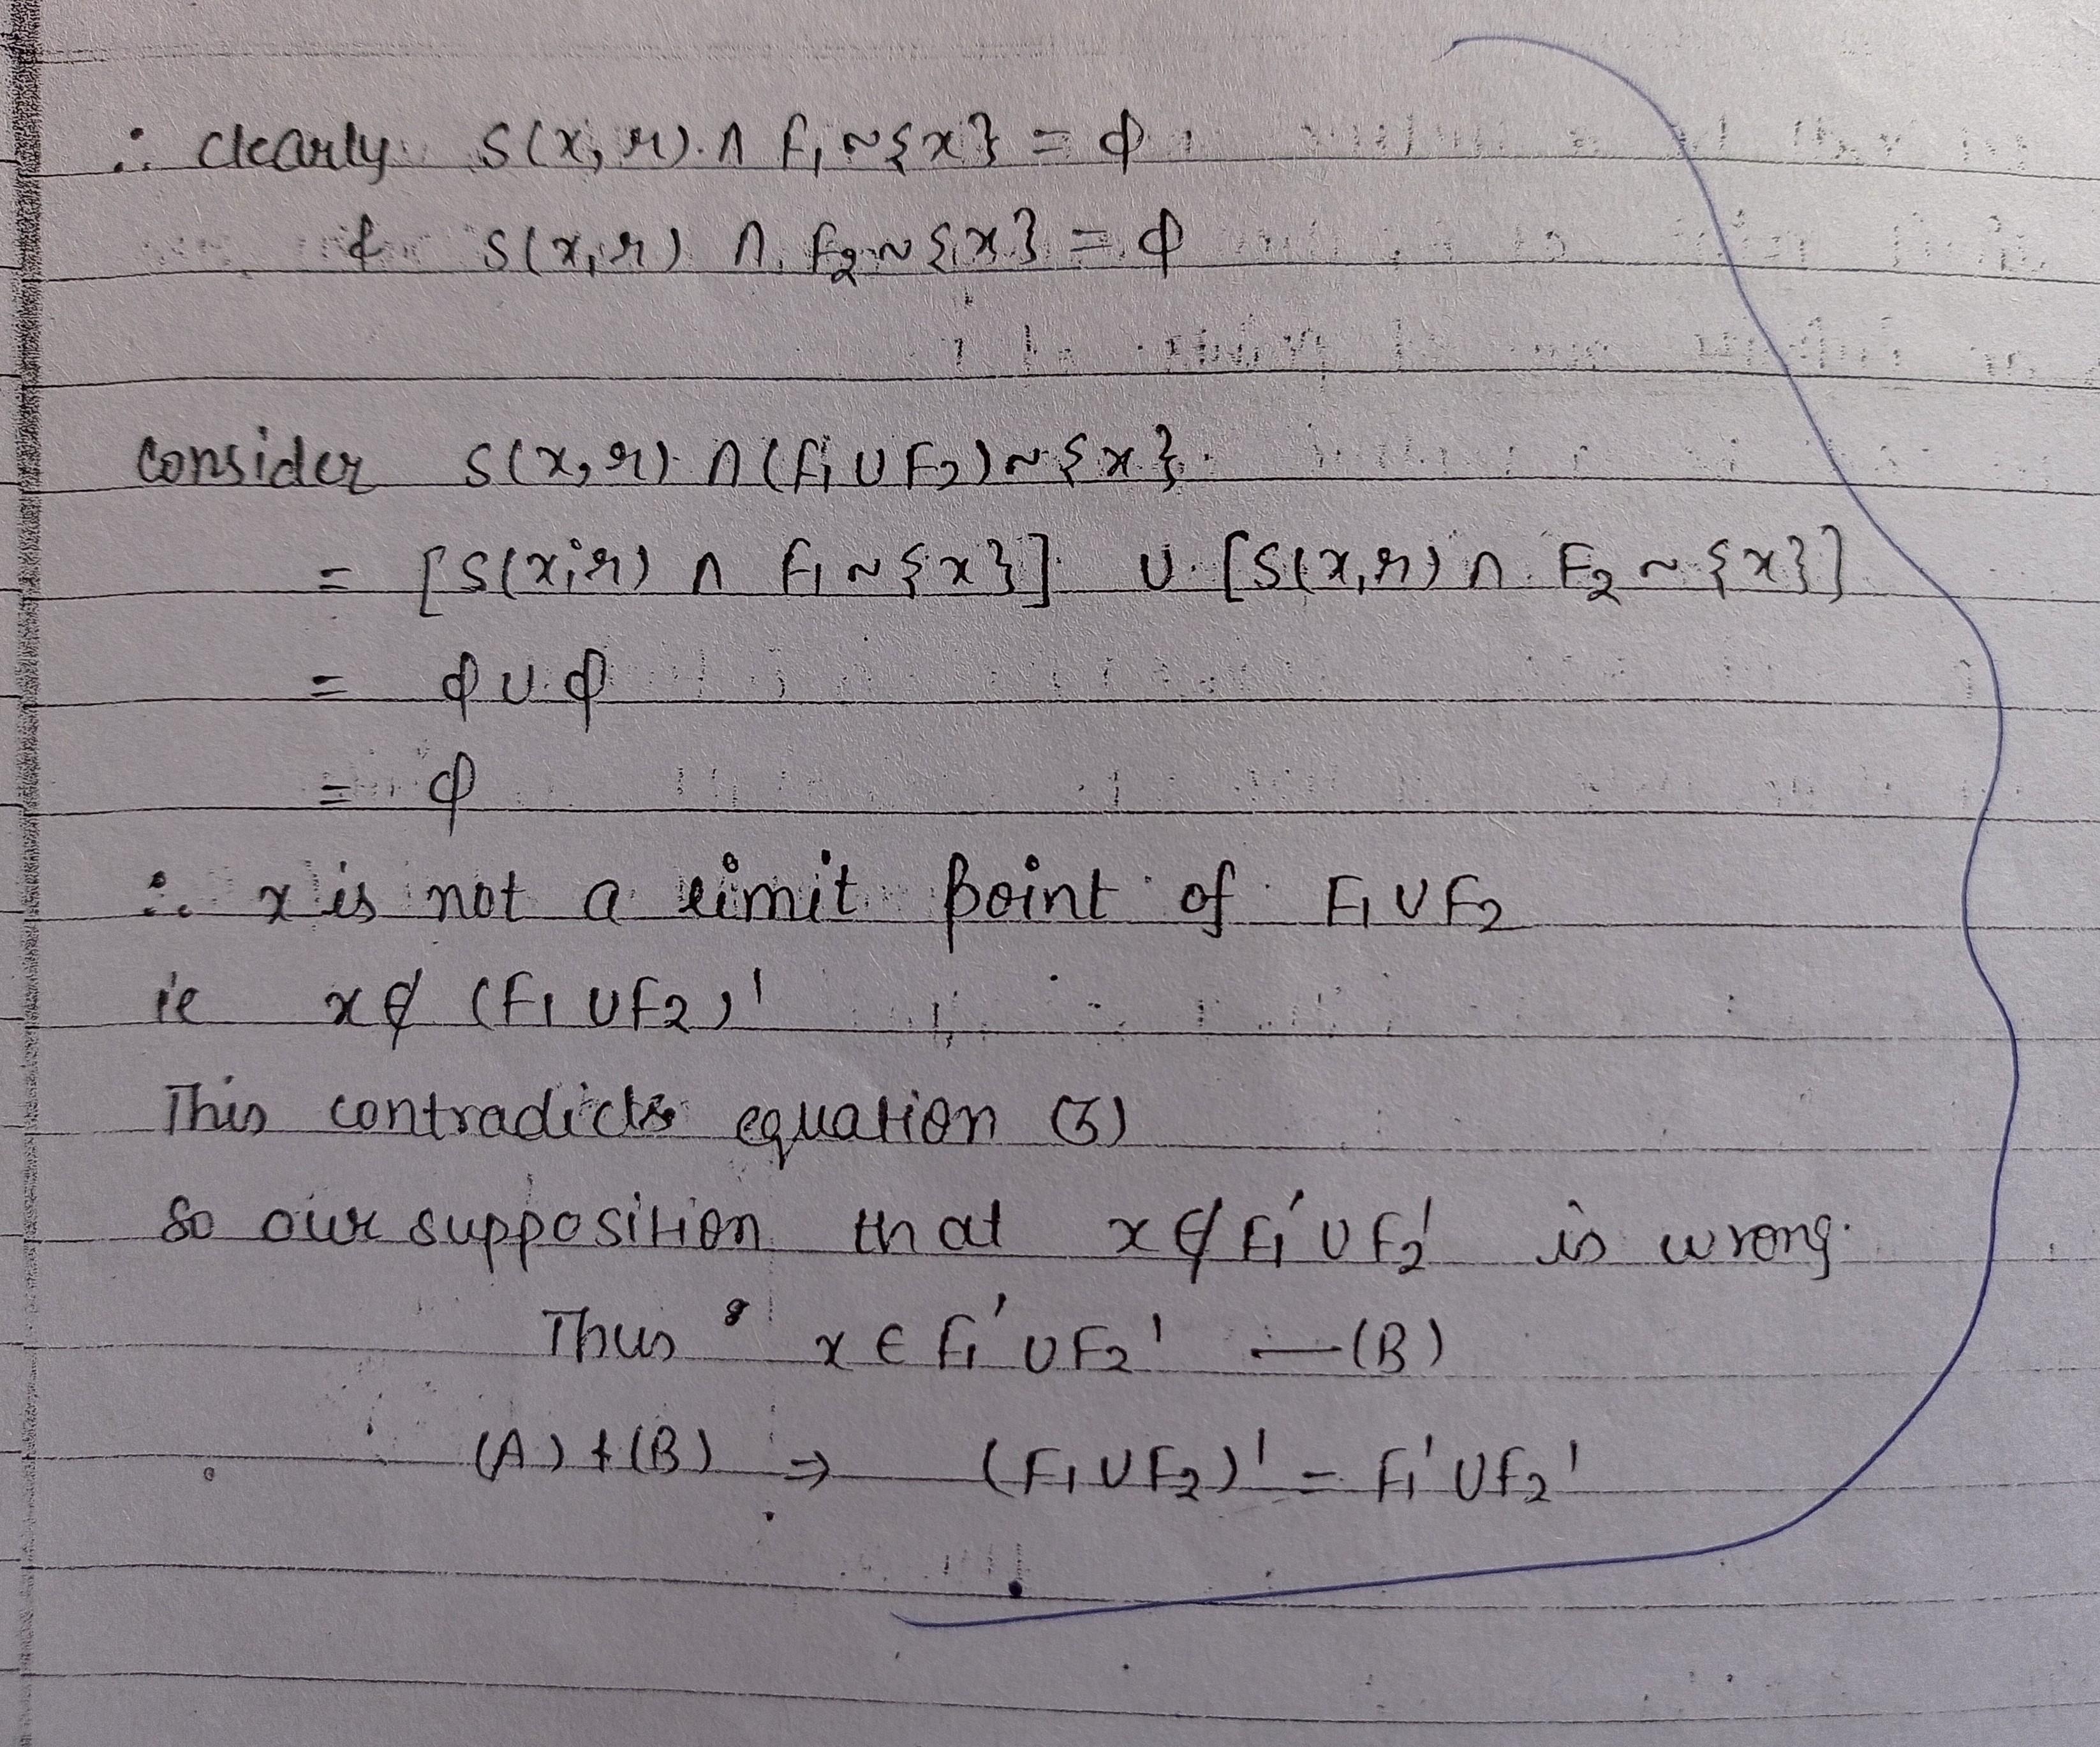 ∴ clearly S(x, r) ∩ F₁ ~ {x} = ϕ
& S(x, r) ∩ F₂ ~ {x} = ϕ
consider S(x, r) ∩ (F₁ ∪ F₂) ~ {x}
= [S(x, r) ∩ F₁ ~ {x}] ∪ [S(x, r) ∩ F₂ ~ {x}]
= ϕ ∪ ϕ
= ϕ
∴ x is not a limit point of F₁ ∪ F₂
ie x ∉ (F₁ ∪ F₂)'
This contradicts equation (3)
So our supposition that x ∉ F₁' ∪ F₂' is wrong.
Thus x ∈ F₁' ∪ F₂' —(B)
(A) + (B) ⇒ (F₁ ∪ F₂)' = F₁' ∪ F₂'